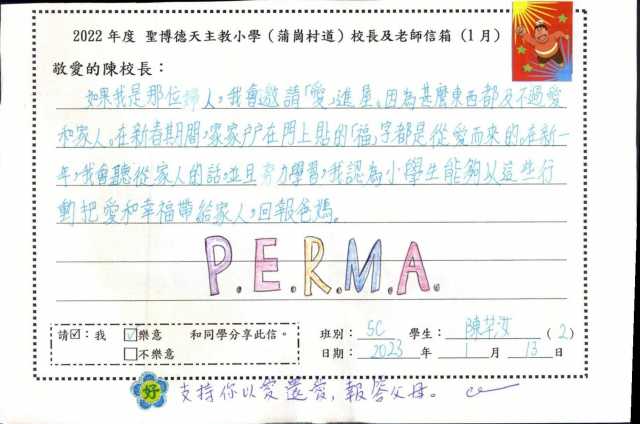 2022 年度 聖博德天主教小學（蒲崗村道）校長及老師信箱（1月）
敬愛的陳校長：
如果我是那位婦人，我會邀請「愛」進屋。因為甚麼東西都及不過愛
和家人。在新春期間，家家戶戶在門上貼的「福」字都是從愛而來的。在新一
年，我會聽從家人的話，並且努力學習，我認為小學生能夠以這些行
動把愛和幸福帶給家人，回報爸媽。
P.E.R.M.A.
請☑：我 ☑樂意 和同學分享此信。
□不樂意
班別： 5C 學生： 陳 汝 (2)
日期： 2023 年 1 月 13 日
好 支持你以愛還愛，報答父母。